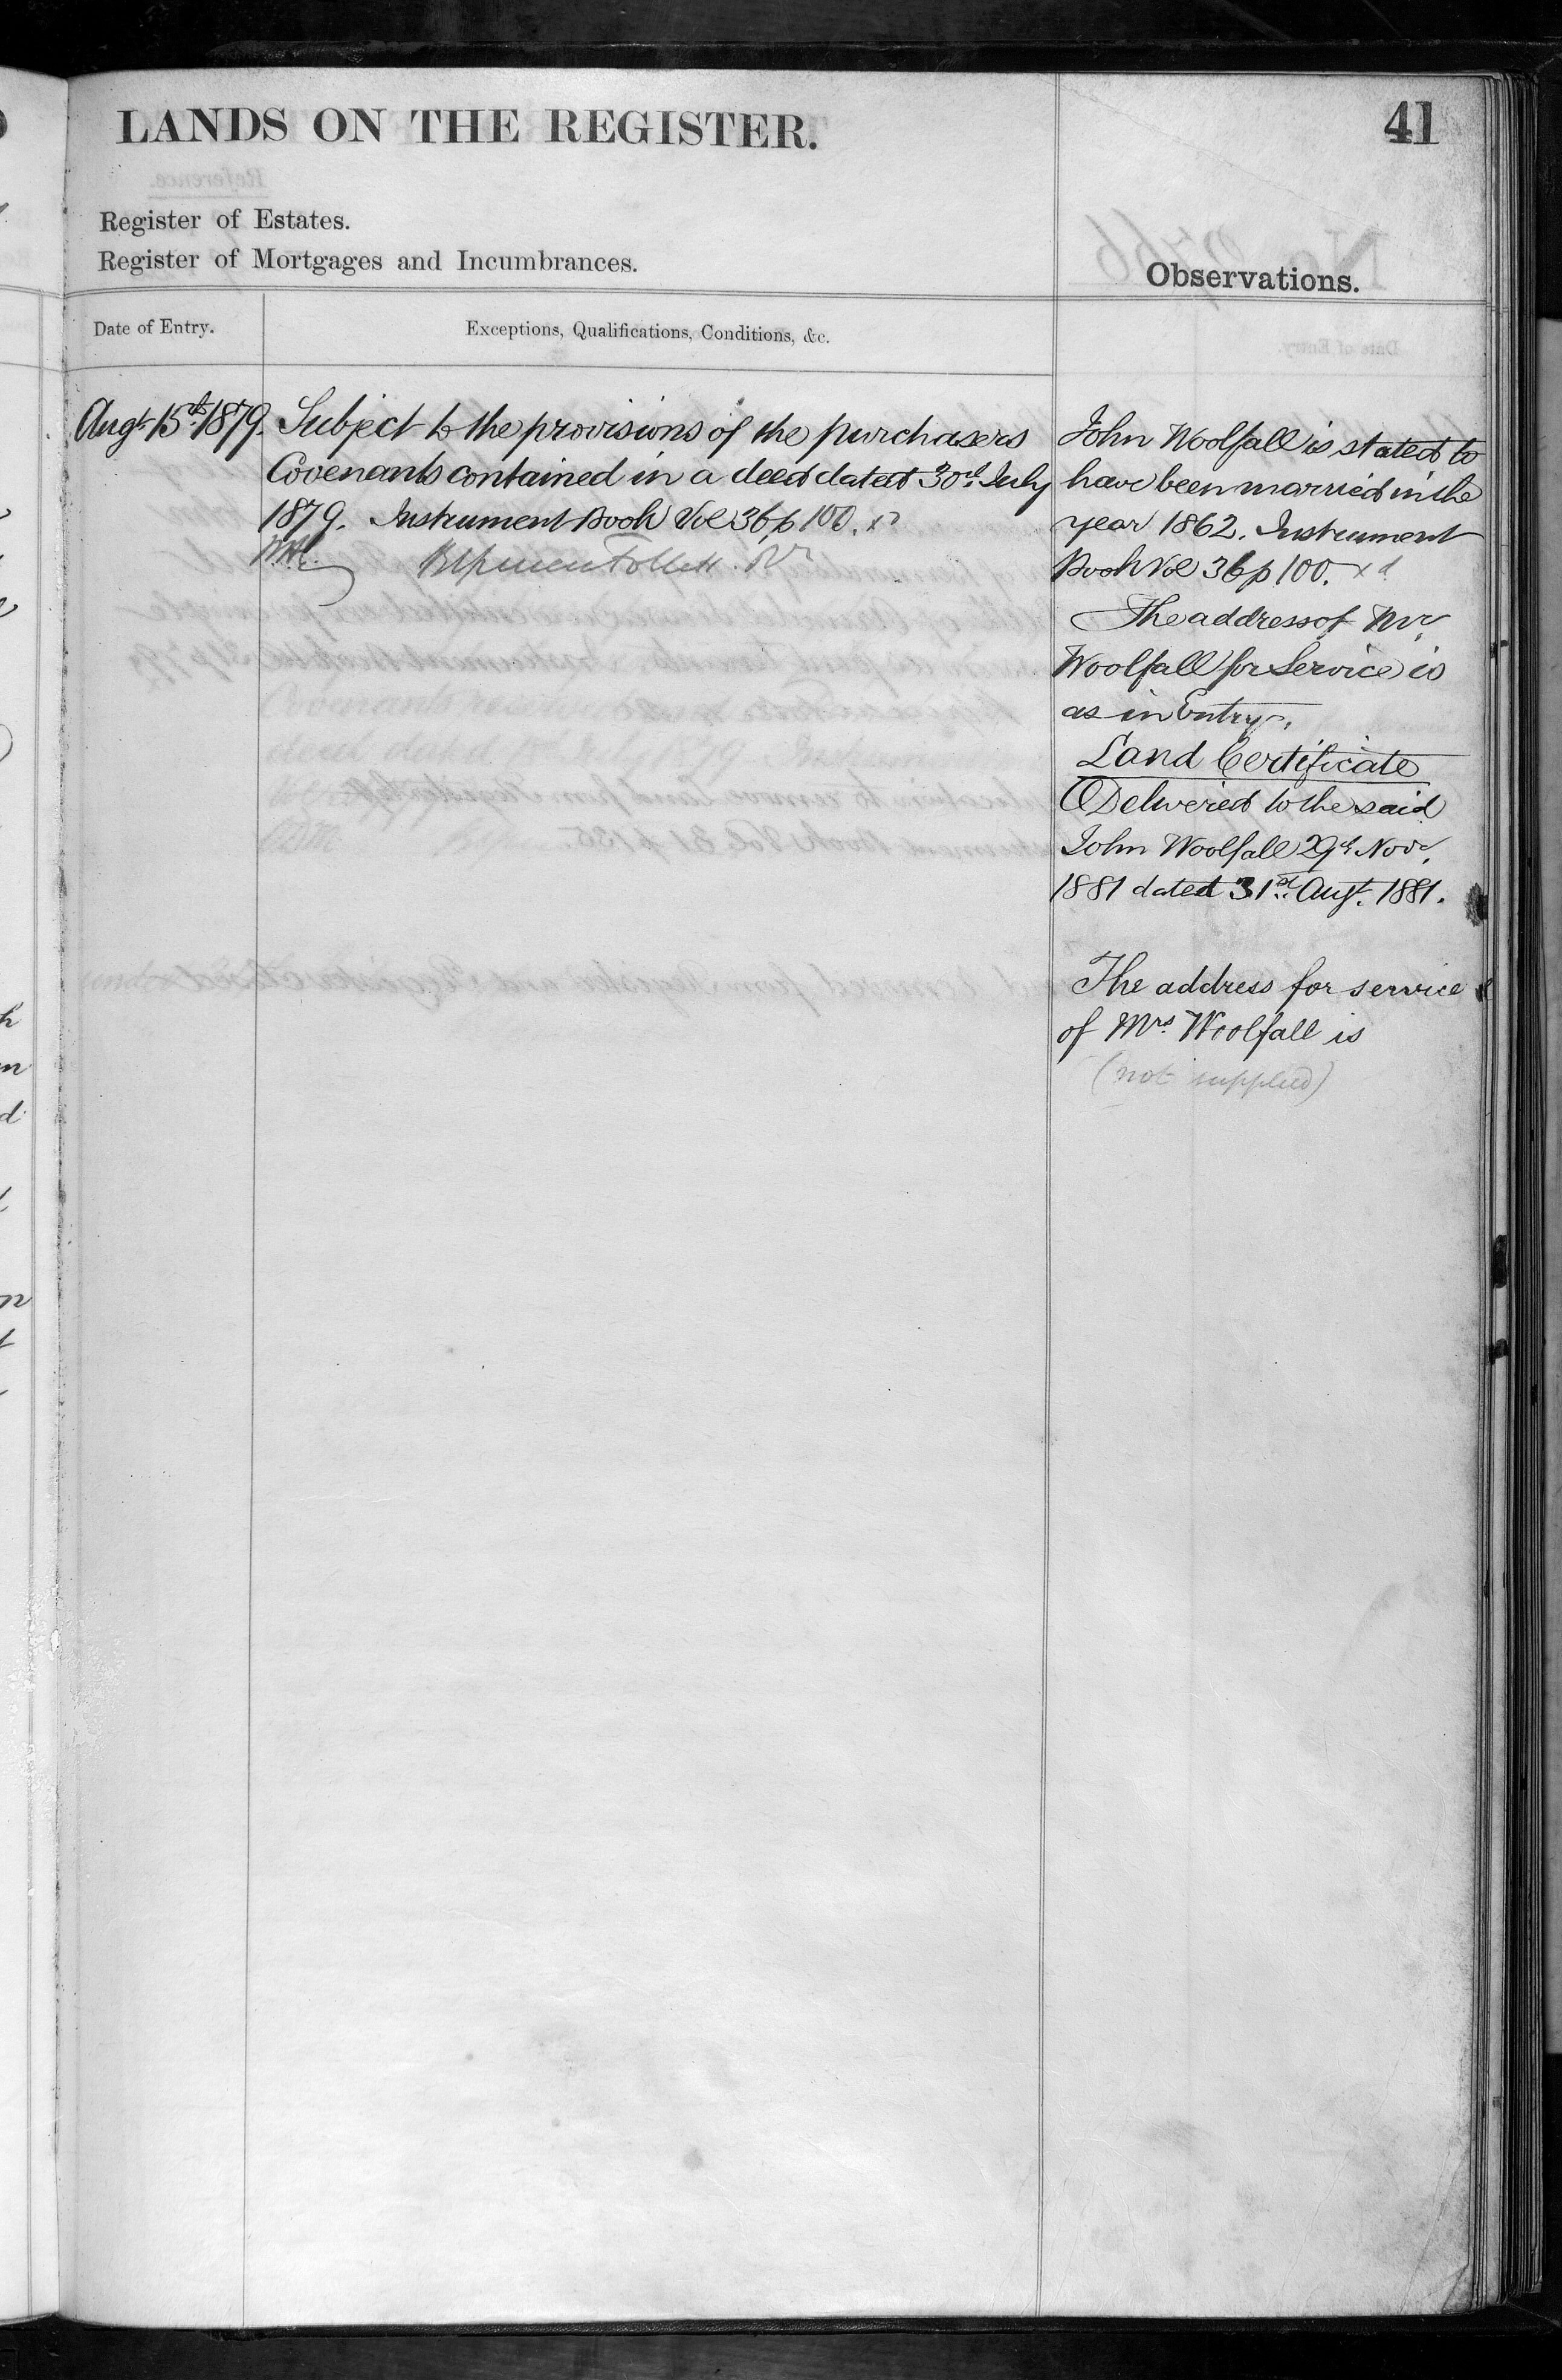 LANDS ON THE REGISTER.
41
Register of Estates.
Register of Mortgages and Incumbrances.
Observations.
Date of Entry.
Exceptions, Qualifications, Conditions, &c.
Augt. 15th. 1879.
Subject to the provisions of the purchasers
Covenants contained in a deed dated 30th July
1879. Instrument Book Vol 36 p 100.
Follett
John Woolfall is stated to
have been married in the
year 1862. Instrument
Book Vol 36 p 100.
The address of Mr
Woolfall for Service is
as in Entry.
Land Certificate
Delivered to the said
John Woolfall 29th Novr.
1881 dated 31st. Augt. 1881.
The address for service
of Mrs. Woolfall is
(not supplied)